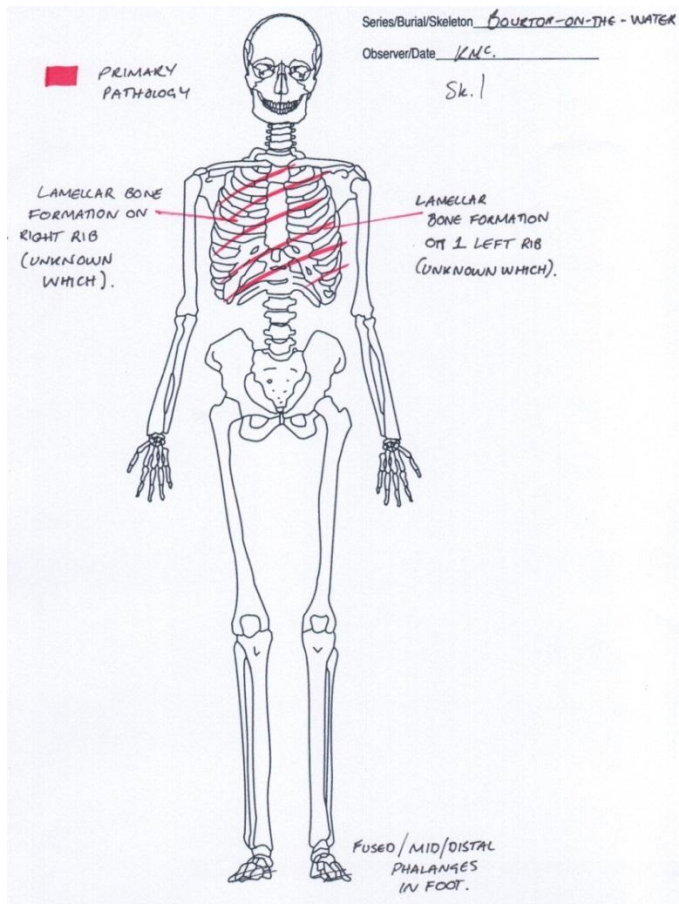 Series/Burial/Skeleton BOURTOR-ON-THE-WATER
Observer/Date KMC.
Sk.1
PRIMARY
PATHOLOGY
LAMELLAR BONE
FORMATION ON
RIGHT RIB
(UNKNOWN
WHICH).
LAMELLAR
BONE FORMATION
ON 1 LEFT RIB
(UNKNOWN WHICH).
FUSED/MID/DISTAL
PHALANGES
IN FOOT.